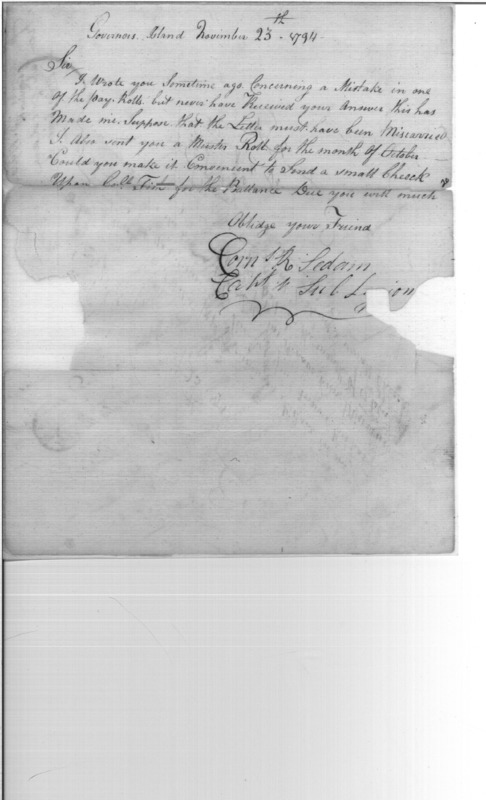 Governors Island November 23th 1794
Sir
I Wrote you Sometime ago Concerning a Mistake in one
of the pay Rolls but never have Received your Answer this has
Made me Suppose that the Letter must have been Miscarried
I Also sent you a Muster Roll for the month of October
Could you make it Convenient to Send a small Check
Upon Coll Fish for the Ballance Due you will much
Oblidge your Friend
Corns R Sedam
Capt 4 Sub L ion